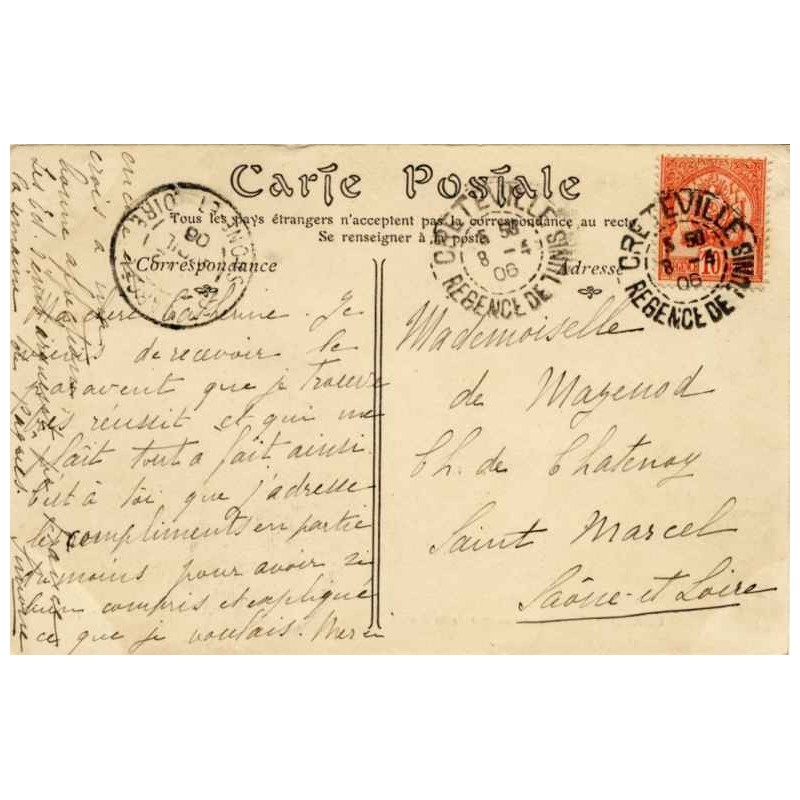 Carte Postale
Tous les pays étrangers n'acceptent pas la correspondance au recto
Se renseigner à la poste
Correspondance
Adresse
CRETEVILLE
5 50
8 - 4
06
REGENCE DE TUNIS
CRETEVILLE
5 50
8 - 4
06
REGENCE DE TUNIS
10
SAONE-ET-LOIRE
06
chère Je
viens de recevoir le
paravent que je trouve
très réussit et qui me
plaît tout à fait ainsi.
C'est à toi que j'adresse
les compliments en partie
du moins pour avoir si
bien compris et expliqué
ce que je voulais. Merci
crois à
bonne
Les Ed.
la semaine de Pâques.
Simone
Mademoiselle
de Mazenod
Ch. de Chatenoy
Saint Marcel
Saône-et-Loire